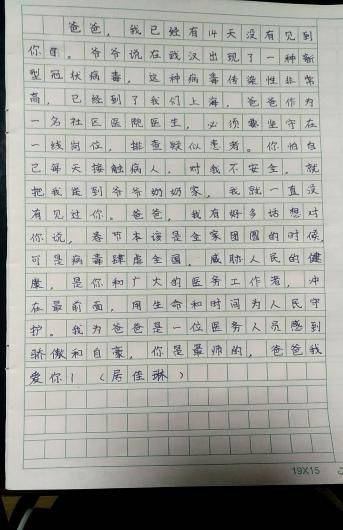 爸爸，我已经有14天没有见到
你了。爷爷说在武汉出现了一种新
型冠状病毒，这种病毒传染性非常
高，已经到了我们上海，爸爸作为
一名社区医院医生，必须要坚守在
一线岗位，排查疑似患者。你怕自
己每天接触病人，对我不安全，就
把我送到爷爷奶奶家，我就一直没
有见过你。爸爸，我有好多话想对
你说，春节本该是全家团圆的时候，
可是病毒肆虐全国。威胁人民的健
康，是你和广大的医务工作者，冲
在最前面，用生命和时间为人民守
护。我为爸爸是一位医务人员感到
骄傲和自豪，你是最帅的，爸爸我
爱你！（居佳琳）
19X15